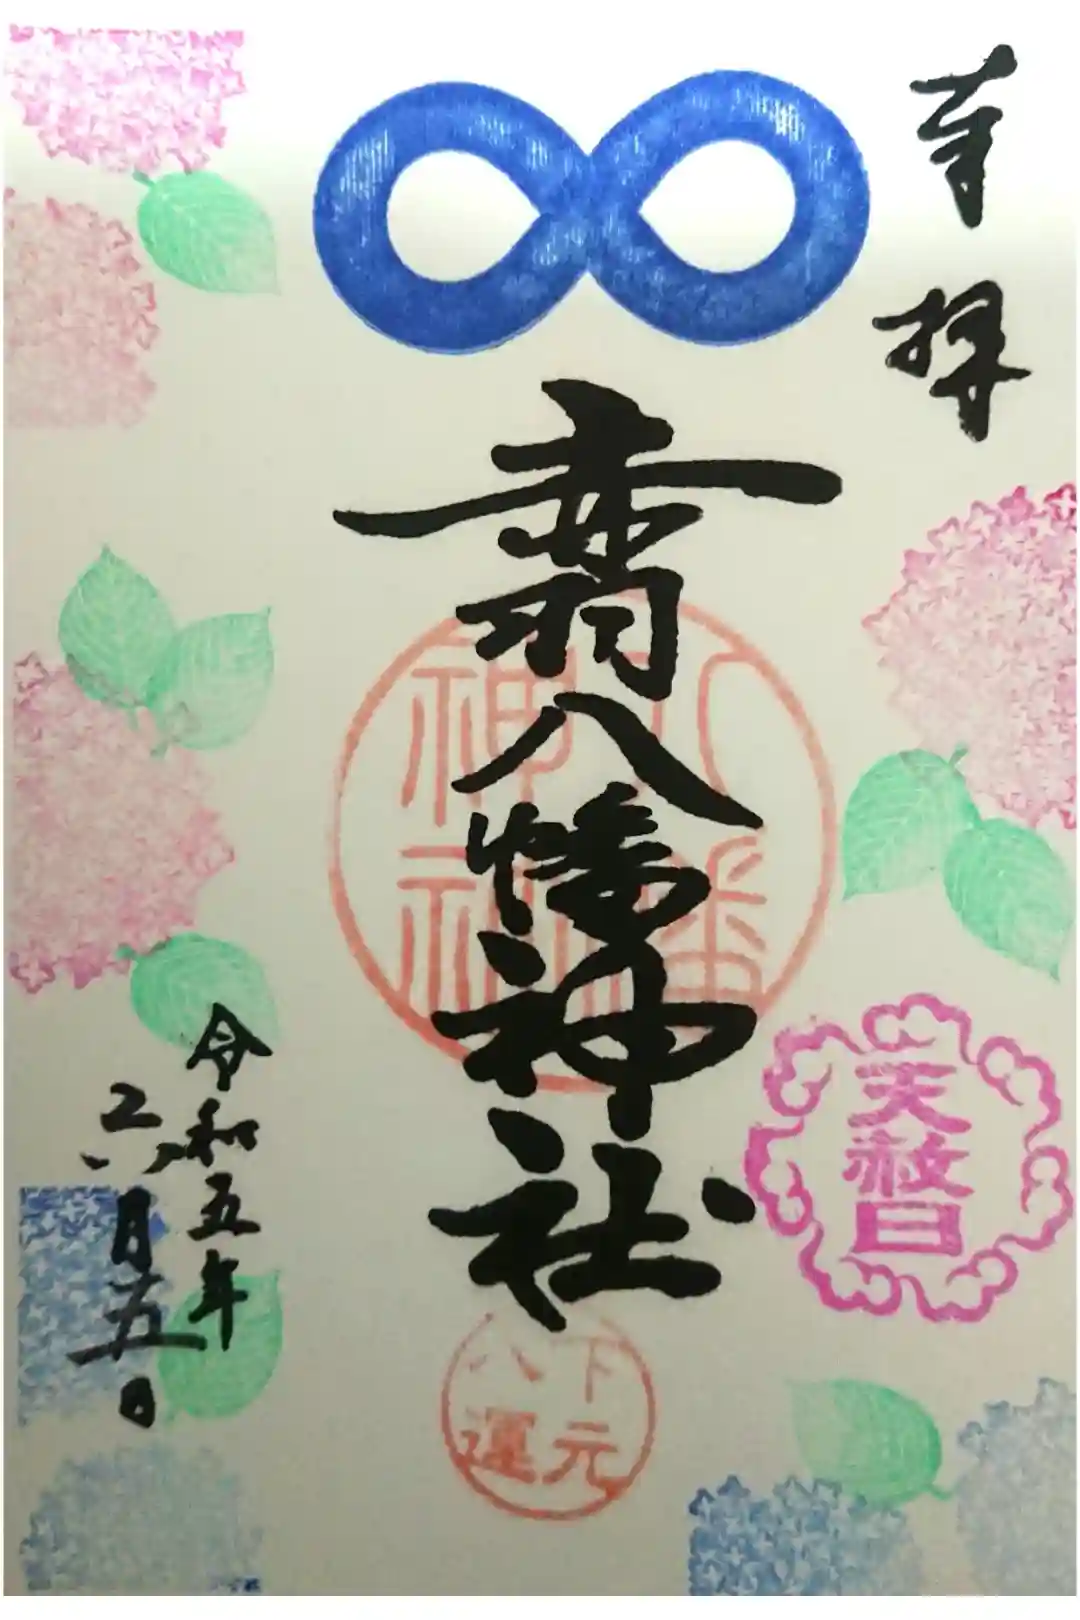 奉拝
赤羽八幡神社
八幡
神社
天赦日
下元
八運
令和五年
六月五日